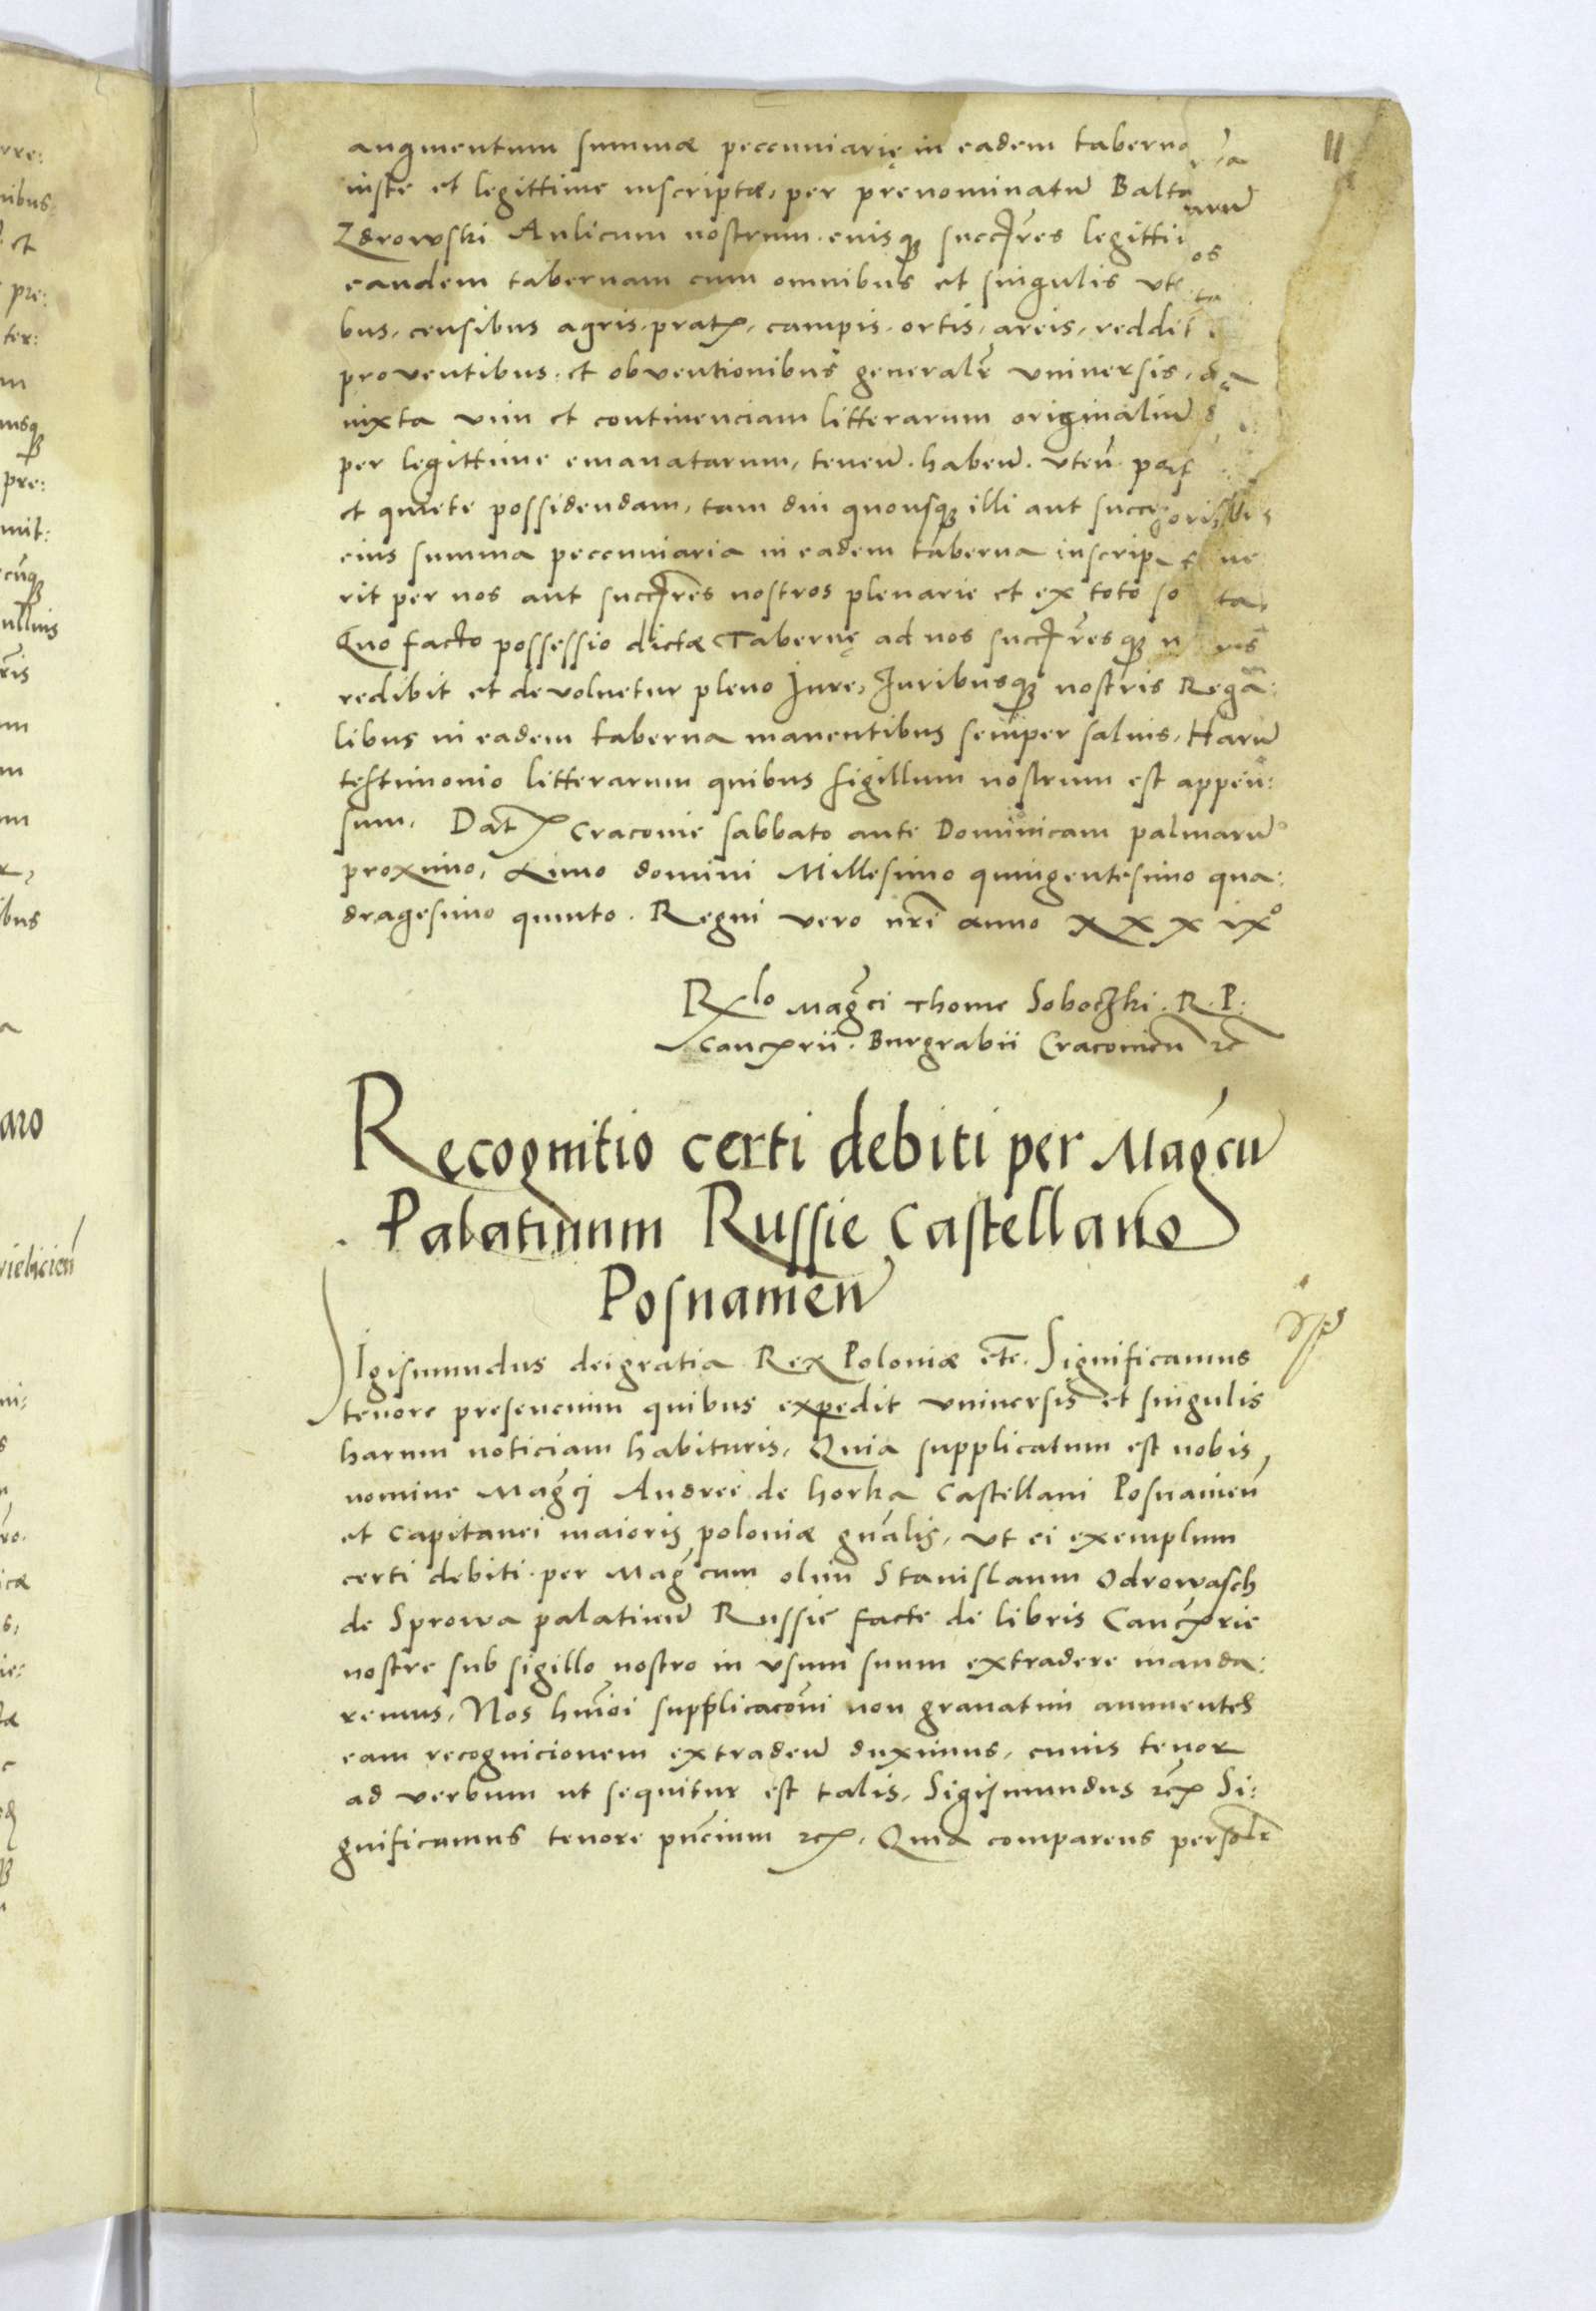 11
augmentum summæ peccuniarię in eadem taberna
iuste et legittime inscriptæ, per pręnominatũ Balta
Zdrowski Aulicum nostrum. eiusq₃ succr̃es legitti os
eandem tabernam cum omnibus et singulis vt
bus, censibus agris. prat. campis. ortis, areis, reddit
proventibus. et obventionibus generalr̃ vniuersis,
iuxta vim et continenciam litterarum originaliũ s
per legittime emanatarum, teneñ. habeñ. vteñ
et quiete possidendam, tam diu quousq₃ illi aut succ
eius summa peccuniaria in eadem taberna inscrip
rit per nos aut succr̃es nostros plenarie et ex toto so ta
Quo facto possessio dictæ Tabernę ad nos succr̃esq₃ n
redibit et devoluetur pleno Jure, Juribusq₃ nostris Rega:
libus in eadem taberna manentibus semper saluis, Harũ
testimonio litterarum quibus sigillum nostrum est appen:
sum. Dat Cracovie sabbato ante Dominicam palmarũ
proximo, Anno domini Millesimo quingentesimo qua:
dragesimo quinto. Regni vero nr̃i anno xxxix°
Rlo Mag̃ci Thome Soboczki. R. P.
Cancrii. Burgrabii Cracovieñ ꝛc
Recognitio certi debiti per Mag̃cũ
Palatinum Russie Castellano
Posnanieñ
Sigismundus dei gratia Rex Poloniæ etc̃. Significamus
tenore presencium quibus expedit vniuersis et singulis
harum noticiam habituris, Quia supplicatum est nobis
nomine Mag̃cj Andree de horka Castellani Posnanieñ
et Capitanei maioris poloniæ gñalis, vt ei exemplum
certi debiti. per Mag̃cum olim Stanislaum Odrowasch
de Sprowa palatinũ Russie facte de libris Cancrie
nostre sub sigillo nostro in vsum suum extradere manda:
remus, Nos hm̃oi supplicacõni non grauatim annuentes
eam recognicionem extradeñ duximus, cuius tenor
ad verbum ut sequitur est talis, Sigismundus ꝛc Si:
gnificamus tenore pñcium ꝛc, Quia comparens persolr̃